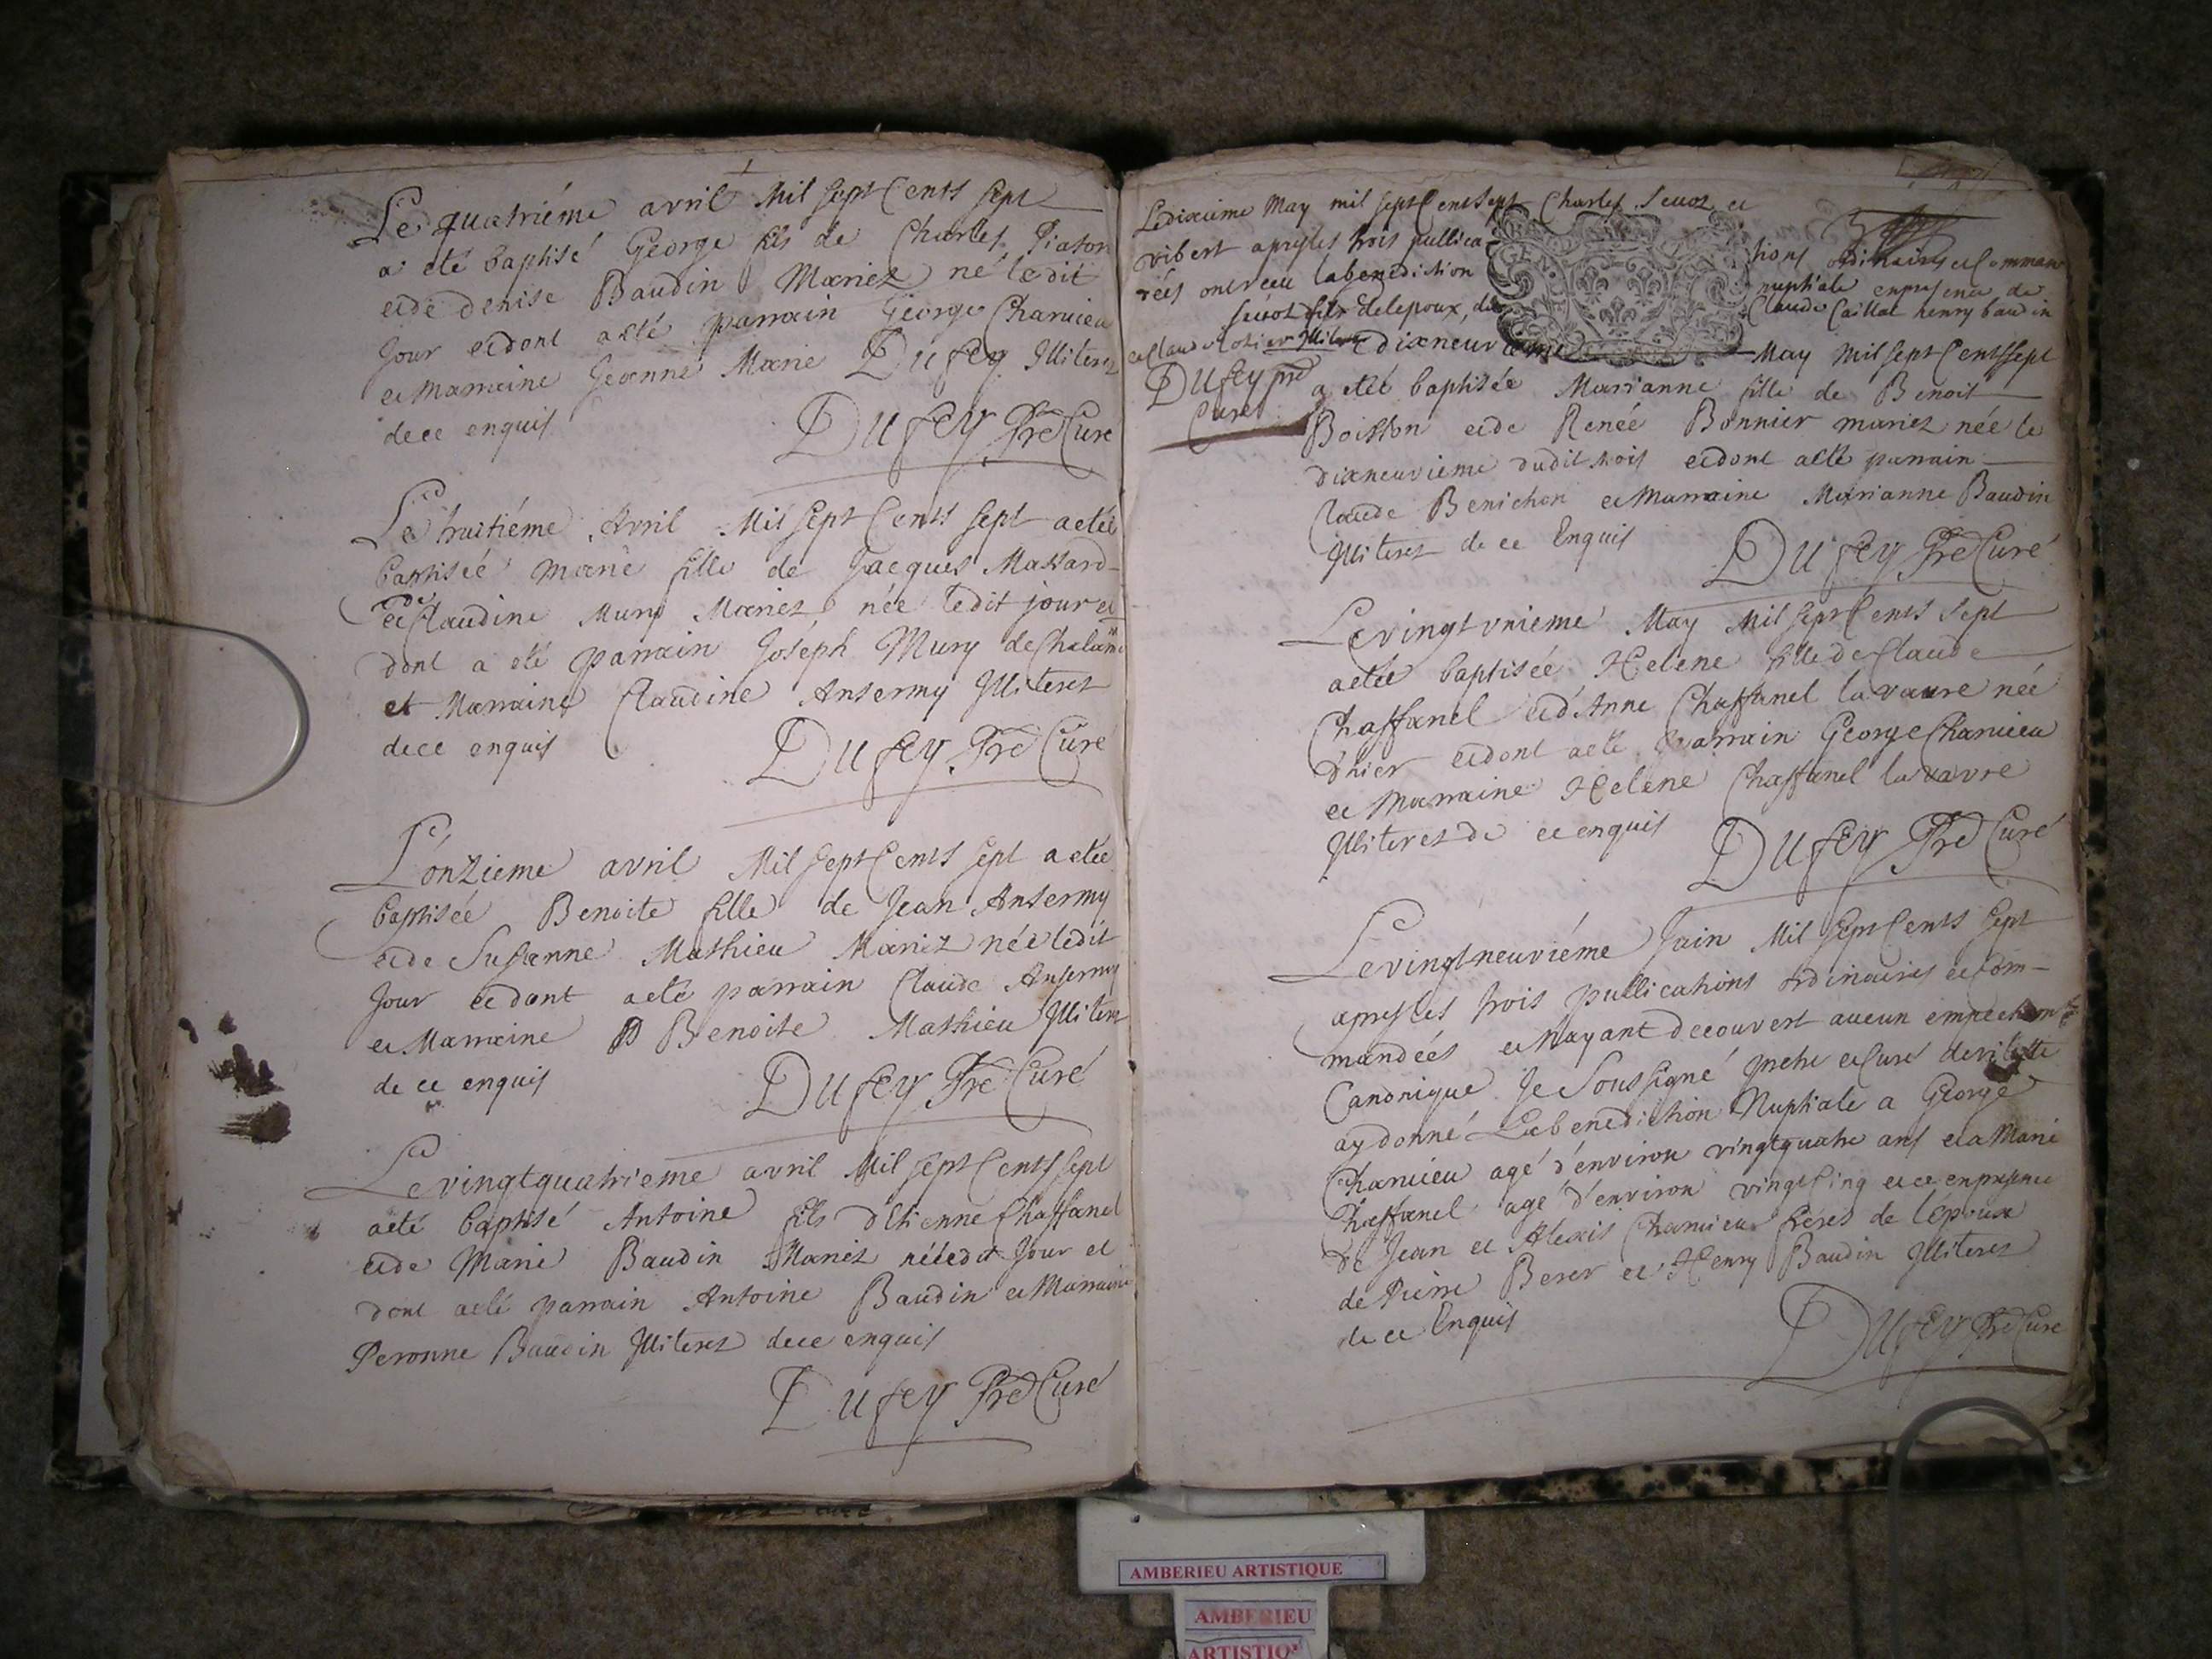 Le quatriéme avril Mil sept Cents sept
a eté baptisé George fils de Charles Piaton
et de denise Baudin Mariez né ledit
Jour et dont a esté parrain George Charvieu
et Marraine Jeanne Marie Dufey Illiterez
de ce enquis
Dufey Pre Curé
Le huitiéme Avril Mil Sept Cents sept a etée
baptiseé Marie fille de Jacques Massard
et de Claudine Mury Mariez née ledit jour et
dont a eté parrain Joseph Mury de
et Marraine Claudine Ansermy Illiterez
de ce enquis
Dufey Pre Curé
L'onzieme avril Mil Sept Cents sept a etée
baptisée Benoite fille de Jean Ansermy
et de Susanne Mathieu Mariez née ledit
Jour et dont a eté parrain Claude Ansermy
et Marraine Benoite Mathieu Illiterez
de ce enquis
Dufey Pre Curé
Le vingtquatrieme avril Mil sept Cents sept
a eté baptisé Antoine fils d'Etienne Chaffanel
et de Marie Baudin Mariez né ledit Jour et
dont a eté parrain Antoine Baudin et Marraine
Peronne Baudin Illiterez de ce enquis
Dufey Pre Curé
Le dixieme May mil sept Cents sept Charles et
vibert apres les trois publications ordinaires et Comman
rées ont receu la benediction nuptiale en presence de
fils de l'epoux, de Claude Caillat henry baudin
et Claude Illiterez
Dufey pre
Curé
Le dixneuvieme May Mil Sept Cents Sept
a etée baptisée Marianne fille de Benoit
Boisson et de Renée Bonnier mariez née le
dixneuvieme dudit mois et dont a eté parrain
Claude Benichon et Marraine Marianne Baudin
Illiterez de ce Enquis
Dufey Pre Curé
Le vingt vnieme May Mil Sept Cents Sept
a etée baptisée Helene fille de Claude
Chaffanel et d'Anne Chaffanel lavavre née
d'hier et dont a eté parrain George Charvieu
et Marraine Helene Chaffanel lavavre
Illiterez de ce enquis
Dufey Pre Curé
Le vingtneuviéme Juin Mil Sept Cents Sept
apres les trois publications ordinaires et Com-
mandées et n'ayant decouvert aucun empechemt
Canonique Je Soussigné pretre et Curé de
ay donné La benediction Nuptiale a George
Charvieu agé d'environ vingtquatre ans et a Marie
Chaffanel agé d'environ vingt Cinq et ce en presence
de Jean et Alexis Charvieu freres de l'époux
de Pierre et Henry Baudin Illiterez
de ce Enquis
Dufey Pre Curé
AMBERIEU ARTISTIQUE
AMBERIEU
ARTISTIQ